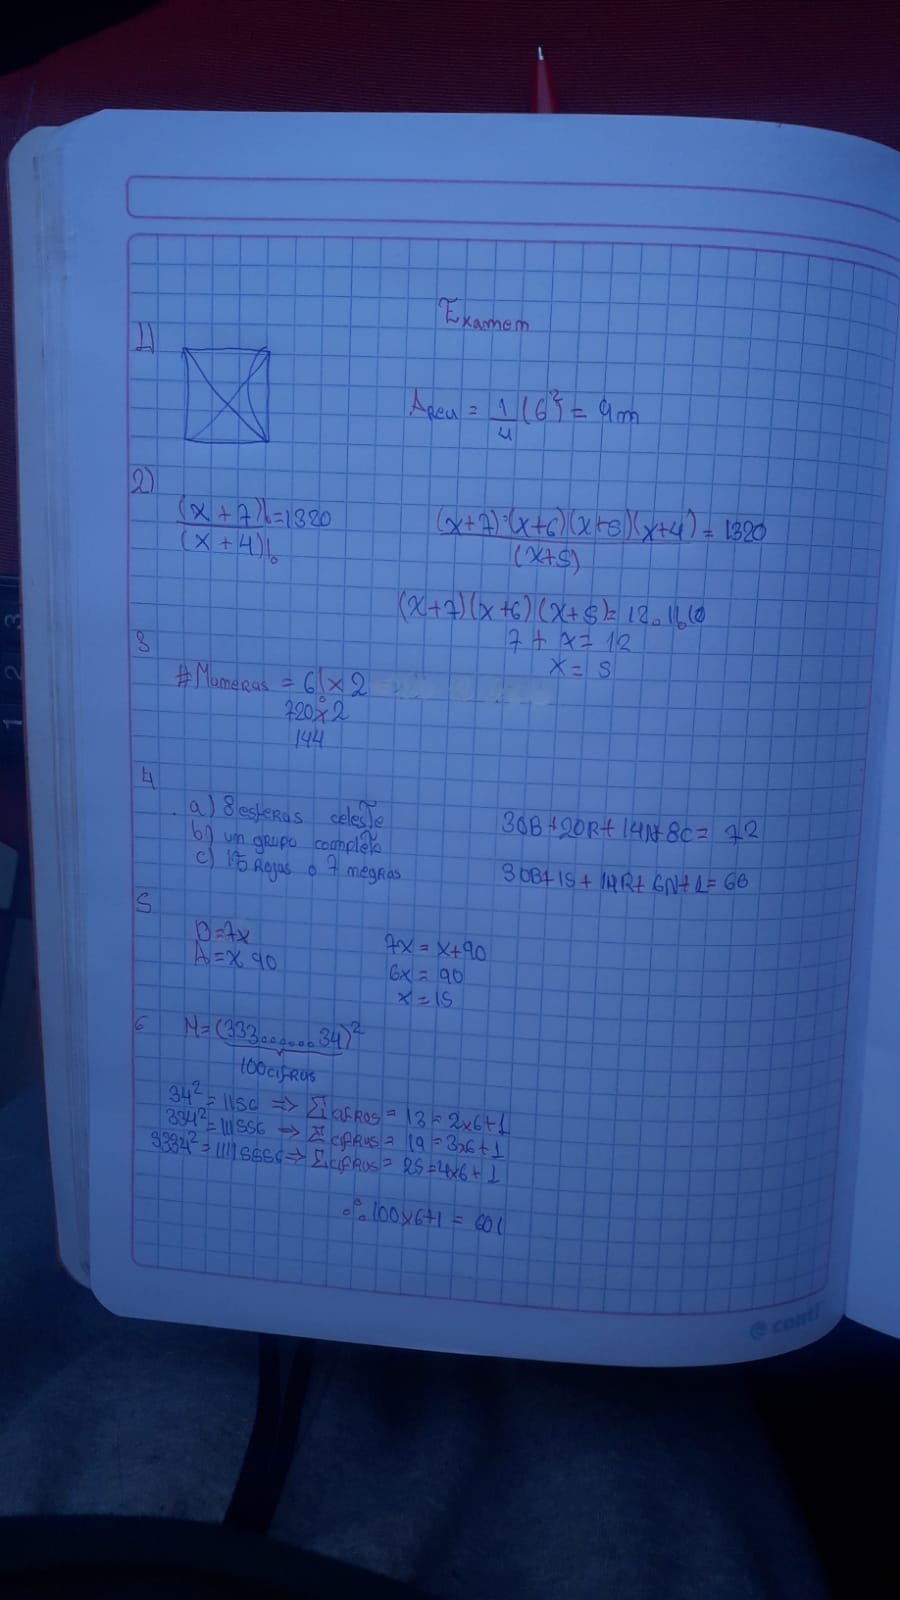 Examen
1)
Area = 1/4 (6²) = 9m
2)
(x+7)!=1320
(x+4)!
(x+7)·(x+6)(x+5)(x+4) = 1320
(x+5)
(x+7)(x+6)(x+5)= 12.11.10
7 + x = 12
x = 5
3
#Maneras = 6! x 2
720x2
144
4
a) 8 esferas celeste
b) un grupo completo
c) 15 Rojas o 7 negras
30B+20R+14N+8C= 72
30B+15+14R+6N+1=66
5
B=7x
A=x 90
7x = x+90
6x = 90
x=15
6 M=(333.......34)²
100cifras
34²=1156 => Σcifras= 13=2x6+1
334²=111556 => Σcifras= 19=3x6+1
3334²=11115556=> Σcifras= 25=4x6+1
∴ 100x6+1 = 601
conti